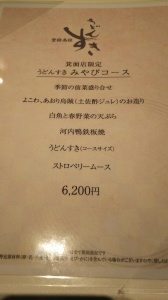 うどんすき
箕面店限定
うどんすき みやびコース
季節の前菜盛り合せ
よこわ、あおり烏賊(土佐酢ジュレ)のお造り
白魚と春野菜の天ぷら
河内鴨鉄板焼
うどんすき(コースサイズ)
ストロベリームース
6,200円